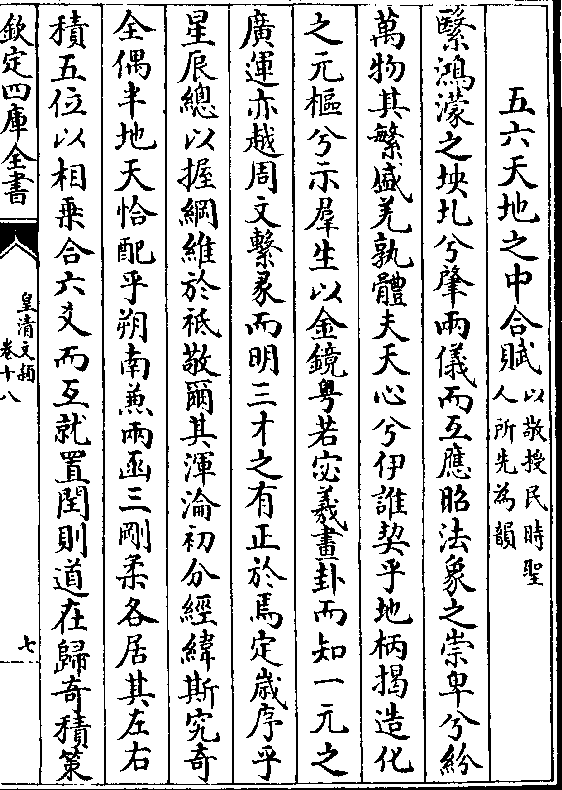 五六天地之中合賦以敬授民時聖
人所先為韻
繄鴻濛之坱圠兮肇兩儀而互應昭法象之崇卑兮紛
萬物其繁盛羌孰體夫天心兮伊誰契乎地柄揭造化
之元樞兮示羣生以金鏡粤若宓羲畫卦而知一元之
廣運亦越周文繫彖而明三才之有正於焉定歲序乎
星辰總以握綱維於祗敬爾其渾淪初分經緯斯究奇
全偶半地天恰配乎朔南兼兩函三剛柔各居其左右
積五位以相乗合六爻而互就置閏則道在歸奇積策
欽定四庫全書
皇清文穎
卷十八
七